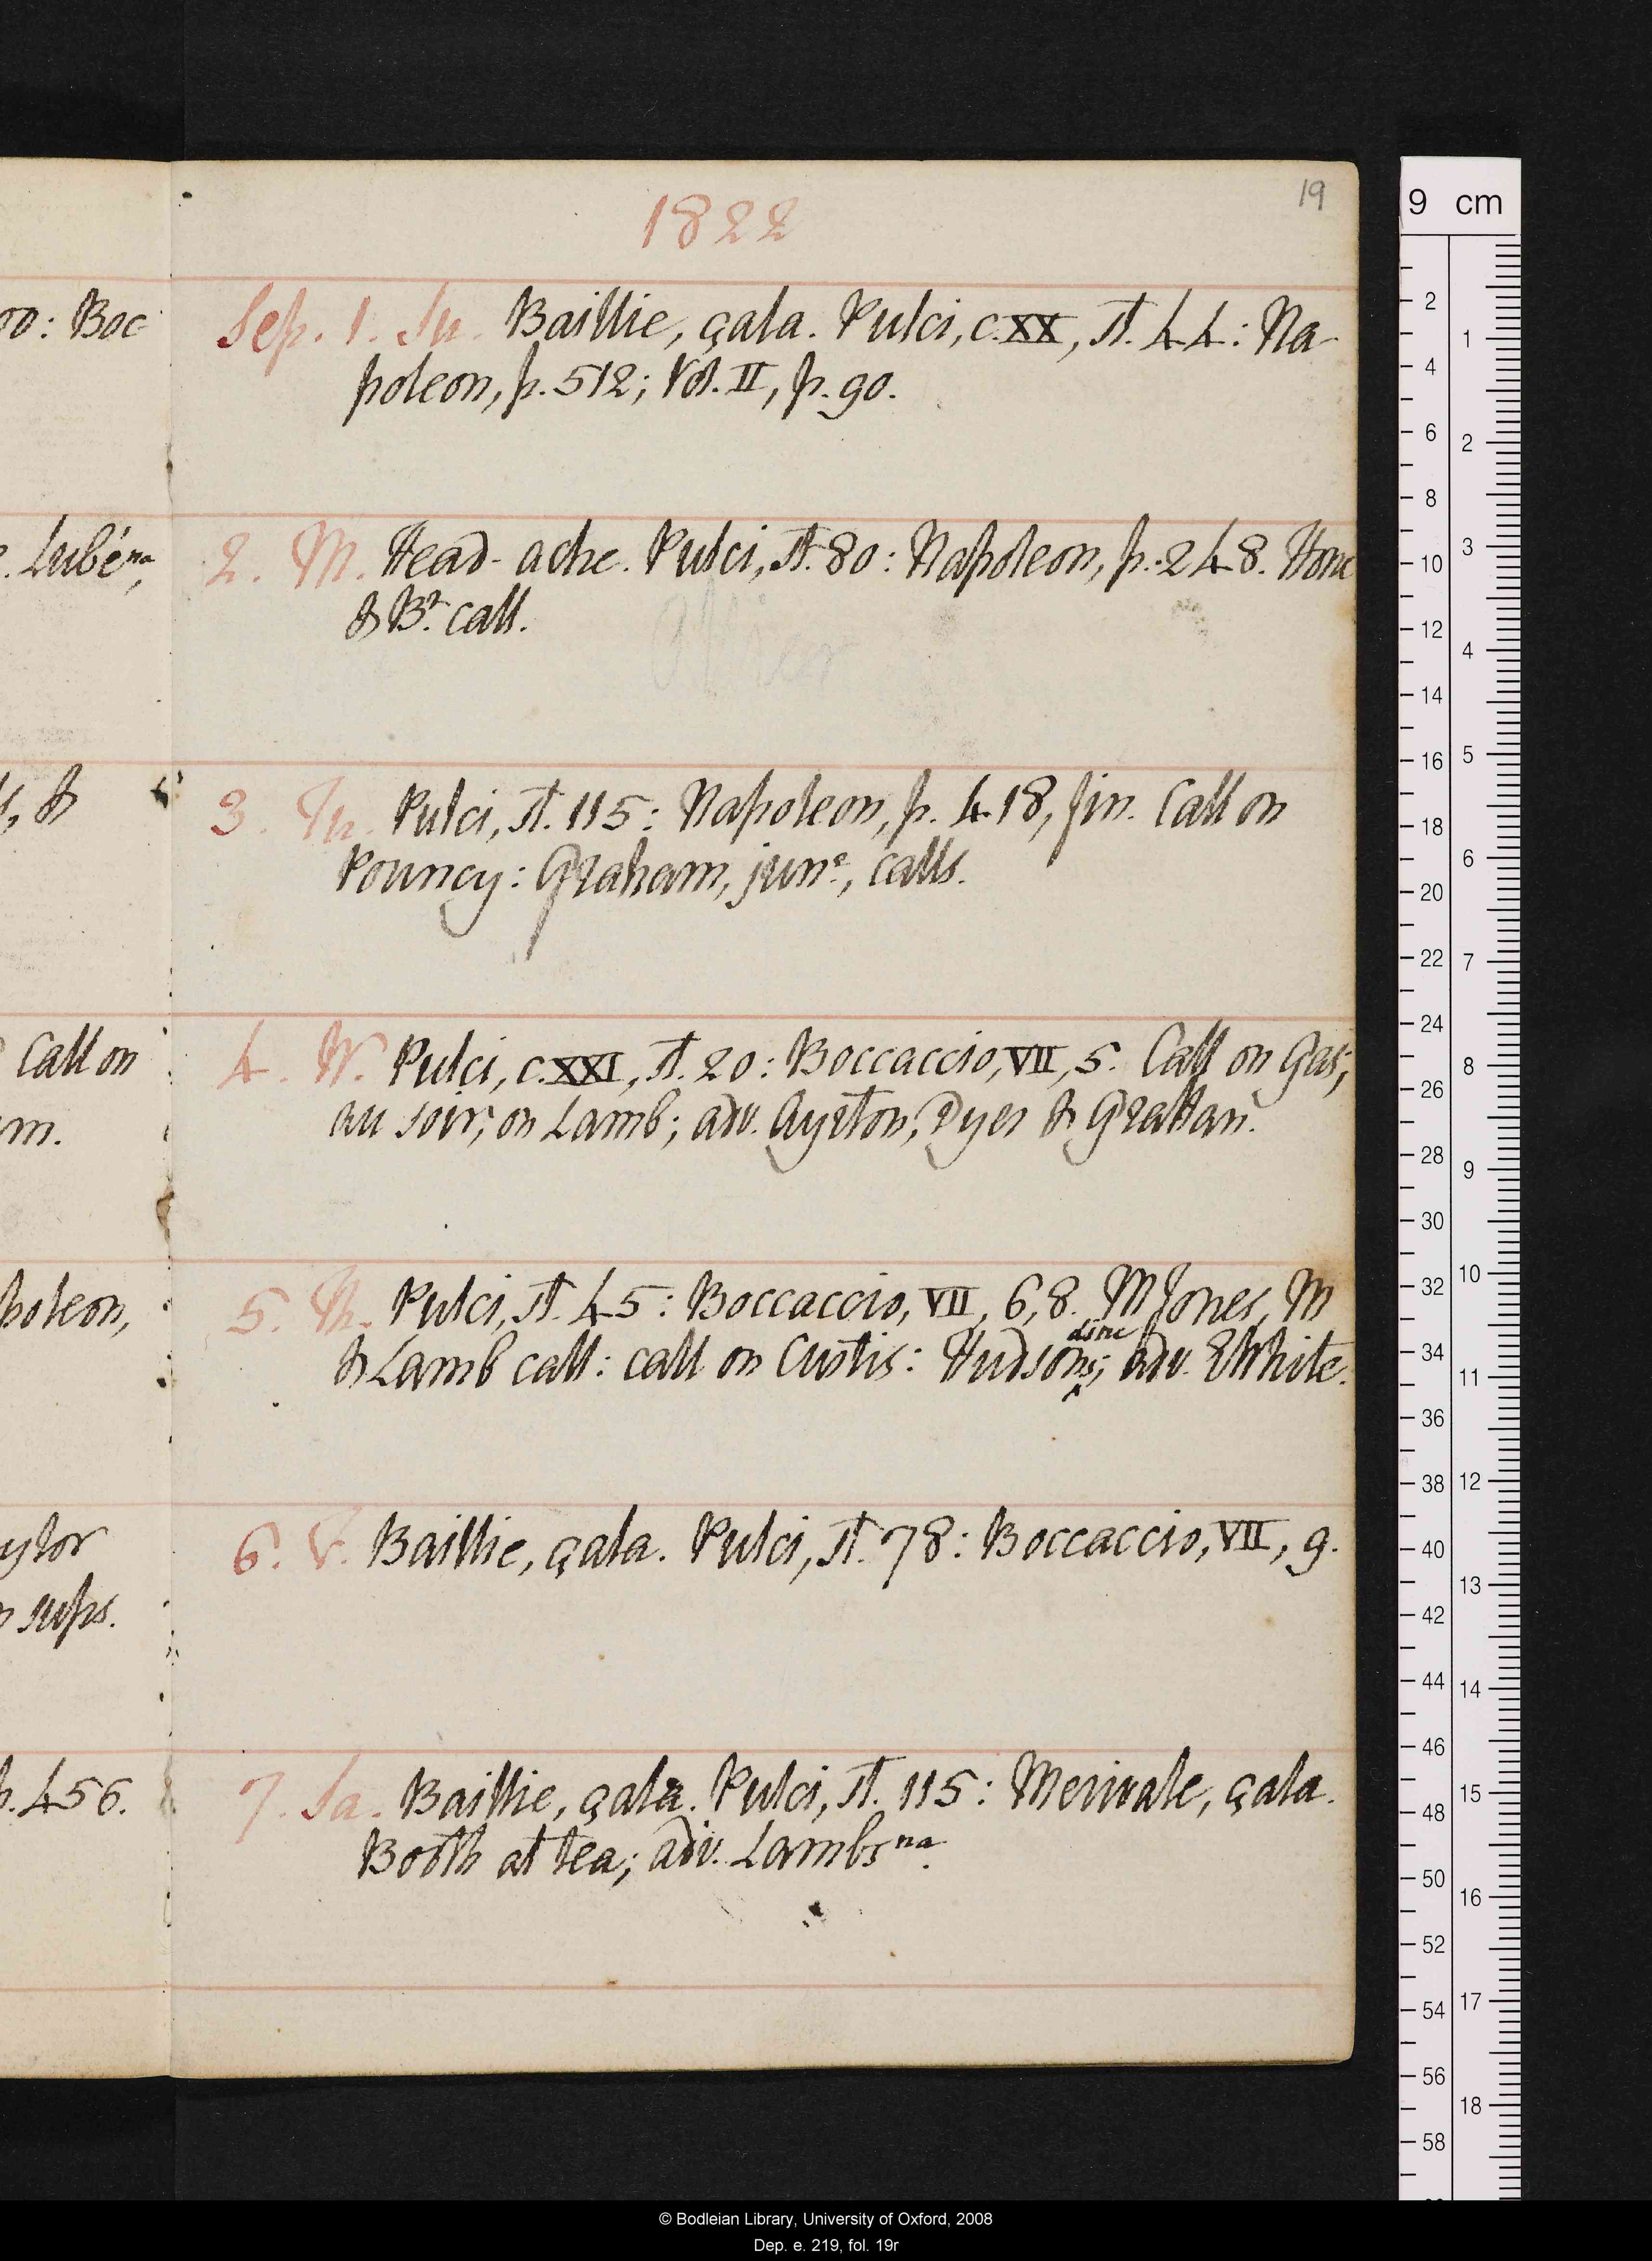 19
1822
Sep. 1. Su. Baillie, çala. Pulci, c. XX, st. 44: Na-
poleon, p. 512; Vol. II, p. 90.
2. M. Head-ache. Pulci, st. 80: Napoleon, p. 248. Hone
& Bt. call.
3. Tu. Pulci, st. 115: Napoleon, p. 418, fin. Call on
Pouncy: Graham, junr., calls.
4. W. Pulci, c. XXI, st. 20: Boccaccio, VII, 5. Call on Gas;
au soir, on Lamb; adv. Ayrton, Dyer & Grattan.
5. Th. Pulci, st. 45: Boccaccio, VII, 6, 8. M Jones, M
& Lamb call: call on Custis: Hudsons dine; adv. E White.
6. F. Baillie, çala. Pulci, st. 78: Boccaccio, VII, 9.
7. Sa. Baillie, çala. Pulci, st. 115: Merivale, çala.
Booth at tea; adv. Lambsna.
00: Boc-
. Lubéna,
s, &
Call on
m.
poleon,
aylor
sups.
p. 456.
9 cm
2
4
6
8
10
12
14
16
18
20
22
24
26
28
30
32
34
36
38
40
42
44
46
48
50
52
54
56
58
1
2
3
4
5
6
7
8
9
10
11
12
13
14
15
16
17
18
© Bodleian Library, University of Oxford, 2008
Dep. e. 219, fol. 19r